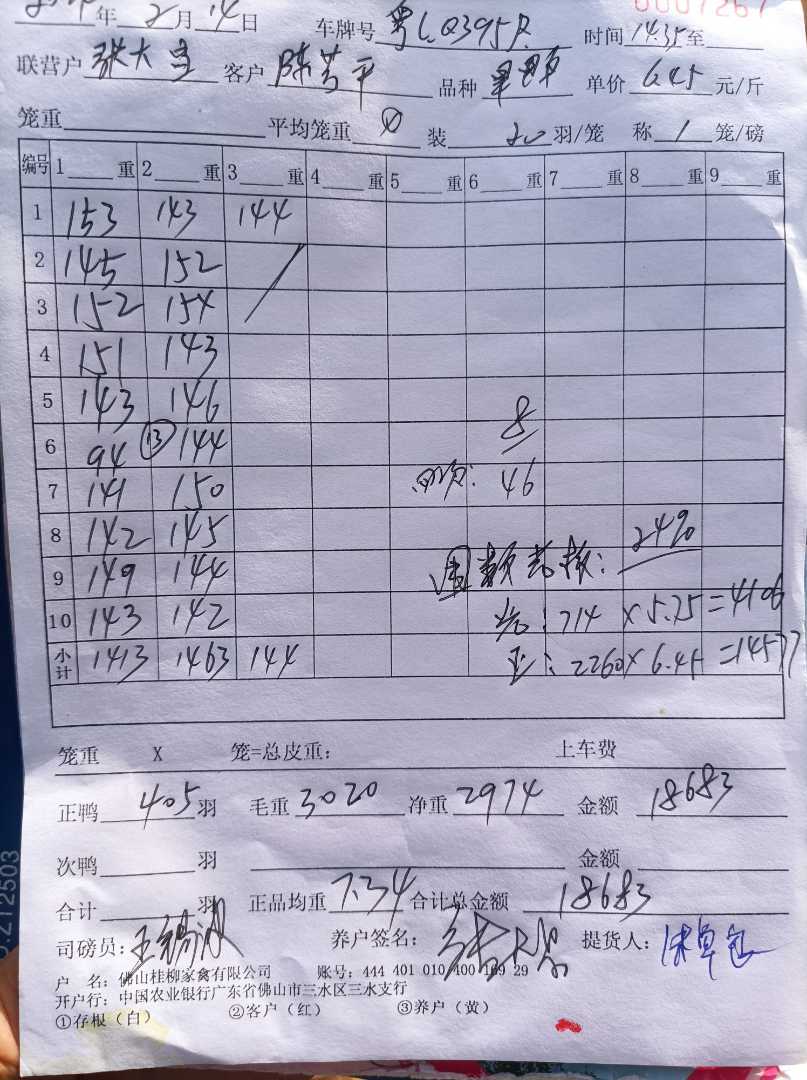 年 2 月 14 日 车牌号 粤LQ395R 时间 14:35 至
联营户 张大 客户 陈芳平 品种 单价 6.45 元/斤
笼重 平均笼重 装 20 羽/笼 称 1 笼/磅
编号 1 重 2 重 3 重 4 重 5 重 6 重 7 重 8 重 9 重
1 153 143 144
2 145 152
3 152 154
4 151 143
5 143 146
8
6 94 ⑬ 144
7 141 150
: 46
8 142 145
24%
9 149 144
10 143 142
: 714 X 5.75 = 4106
小计 1413 1463 144
: 2260 X 6.45 = 14577
笼重 X 笼=总皮重: 上车费
正鸭 405 羽 毛重 3020 净重 2974 金额 18683
次鸭 羽 金额
合计 羽 正品均重 7.34 合计总金额 18683
司磅员: 王锡波 养户签名: 提货人:
户 名: 佛山桂柳家禽有限公司 账号: 444 401 010 400 169 29
开户行: 中国农业银行广东省佛山市三水区三水支行
①存根(白) ②客户(红) ③养户(黄)